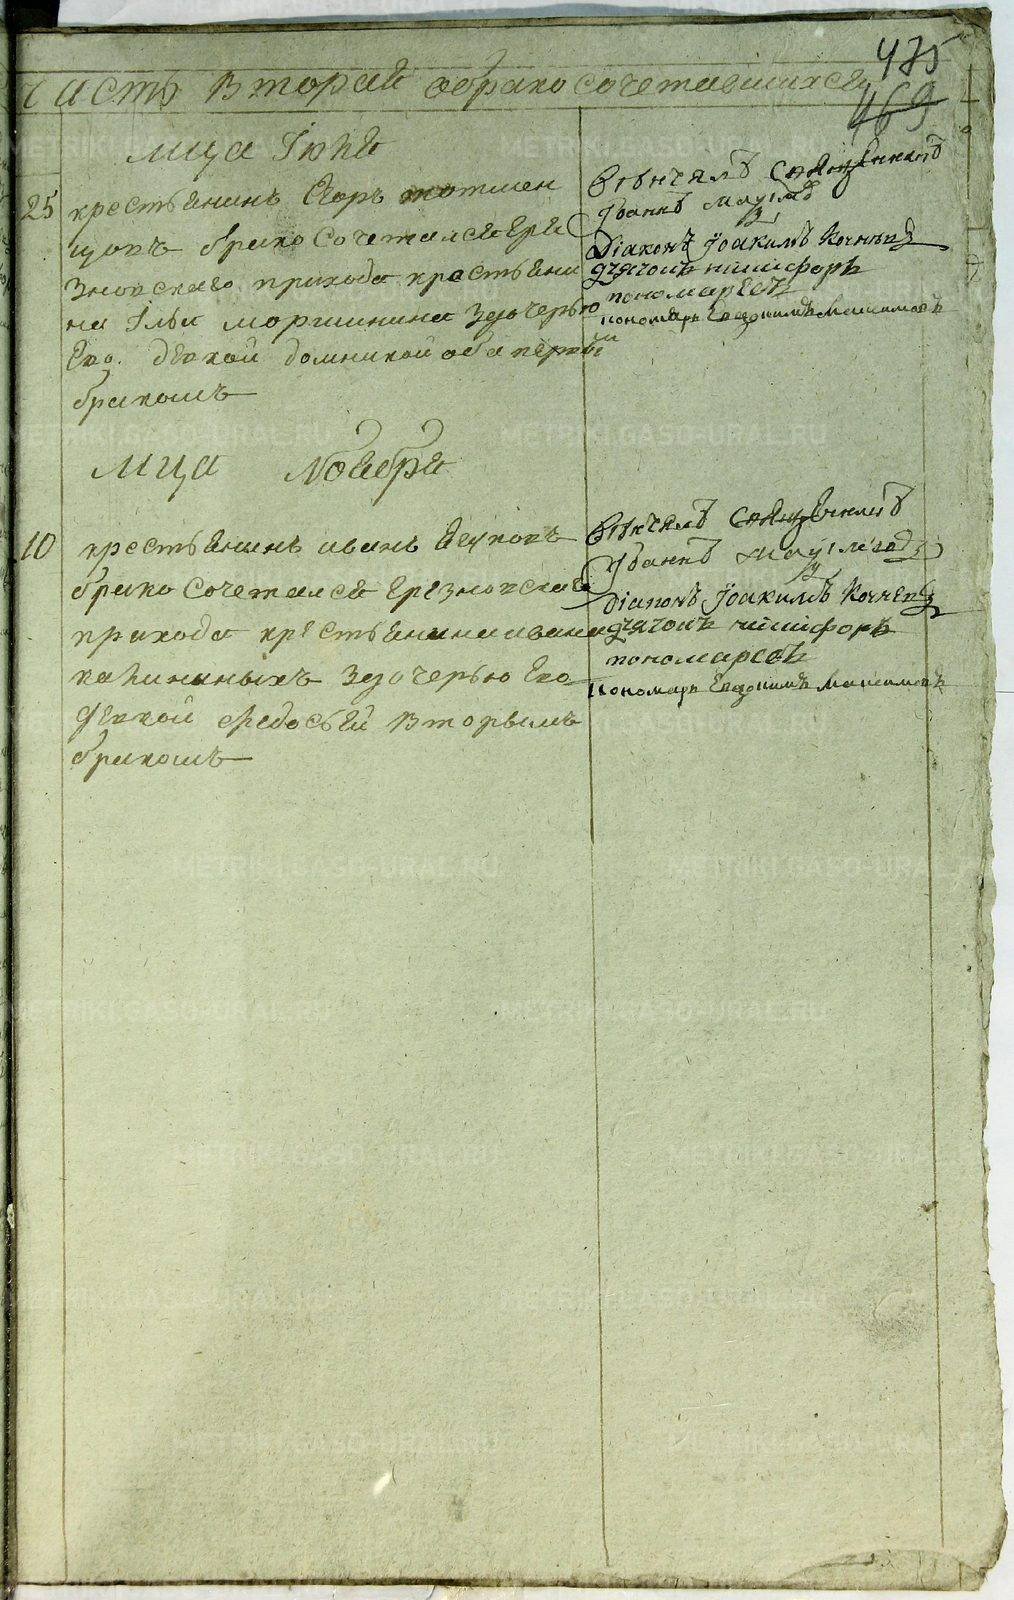 475
469
Часть вторая обрако сочетавшихся
мца Iюня
25
крестьянинъ Егоръ тотмен
щовъ брако сочетался гря
зновскаго прихода крестьяни
на Iльи моршинина здочерью
Ево девкой домникой оба первы
бракомъ
Вѣнчалъ священникъ
Iоаннъ
Дiаконъ Iоакимъ Кочневъ
дьячокъ никифоръ
пономаревъ
пономарь Евдокимъ Максимовъ
мца Ноября
10
крестьянинъ иванъ
брако сочетался грязновскаго
прихода крестьянина ивана
калининыхъ здочерью Ево
девкой федосьей вторымъ
бракомъ
Вѣнчалъ священникъ
Iоаннъ
Дiаконъ Iоакимъ Кочневъ
дьячокъ никифоръ
пономаревъ
пономарь Евдокимъ Максимовъ
METRIKI.GASO-URAL.RU